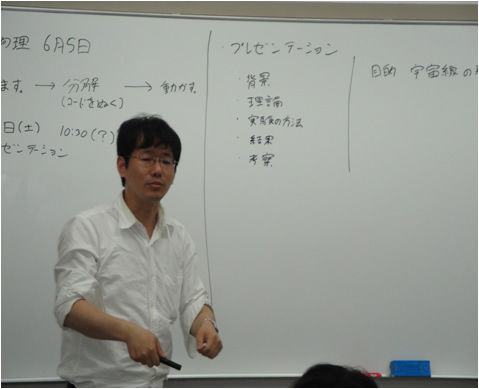 物理 6月5日
ます。 → 分解 → 動かす
(コードをぬく)
日(土) 10:30(?)
ゼンテーション
・プレゼンテーション
・背景
・理論
・実験の方法
・結果
・考察
目的 宇宙線の